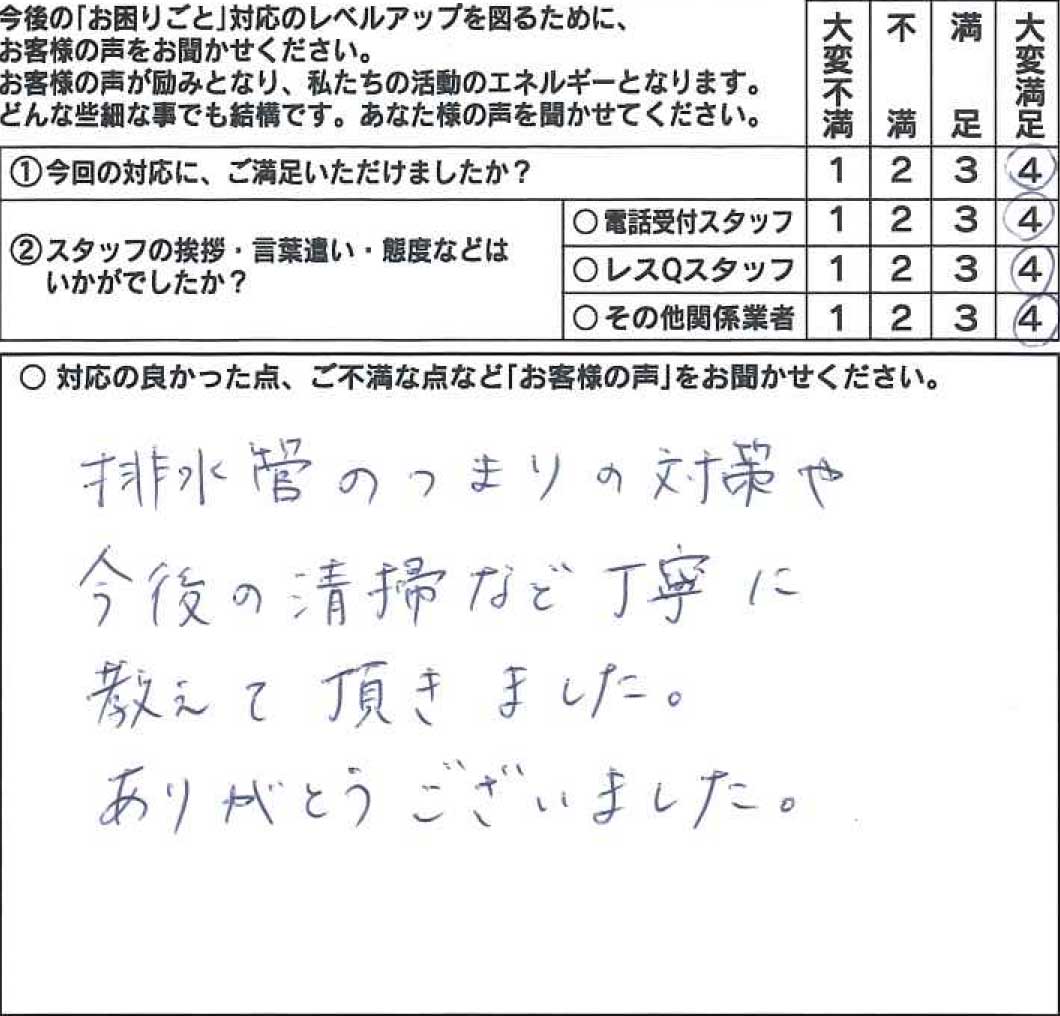 今後の「お困りごと」対応のレベルアップを図るために、
お客様の声をお聞かせください。
お客様の声が励みとなり、私たちの活動のエネルギーとなります。
どんな些細な事でも結構です。あなた様の声を聞かせてください。
大変不満 不満 満足 大変満足
①今回の対応に、ご満足いただけましたか？ 1 2 3 4
②スタッフの挨拶・言葉遣い・態度などは
いかがでしたか？
○電話受付スタッフ 1 2 3 4
○レスQスタッフ 1 2 3 4
○その他関係業者 1 2 3 4
○ 対応の良かった点、ご不満な点など「お客様の声」をお聞かせください。
排水管のつまりの対策や
今後の清掃など丁寧に
教えて頂きました。
ありがとうございました。